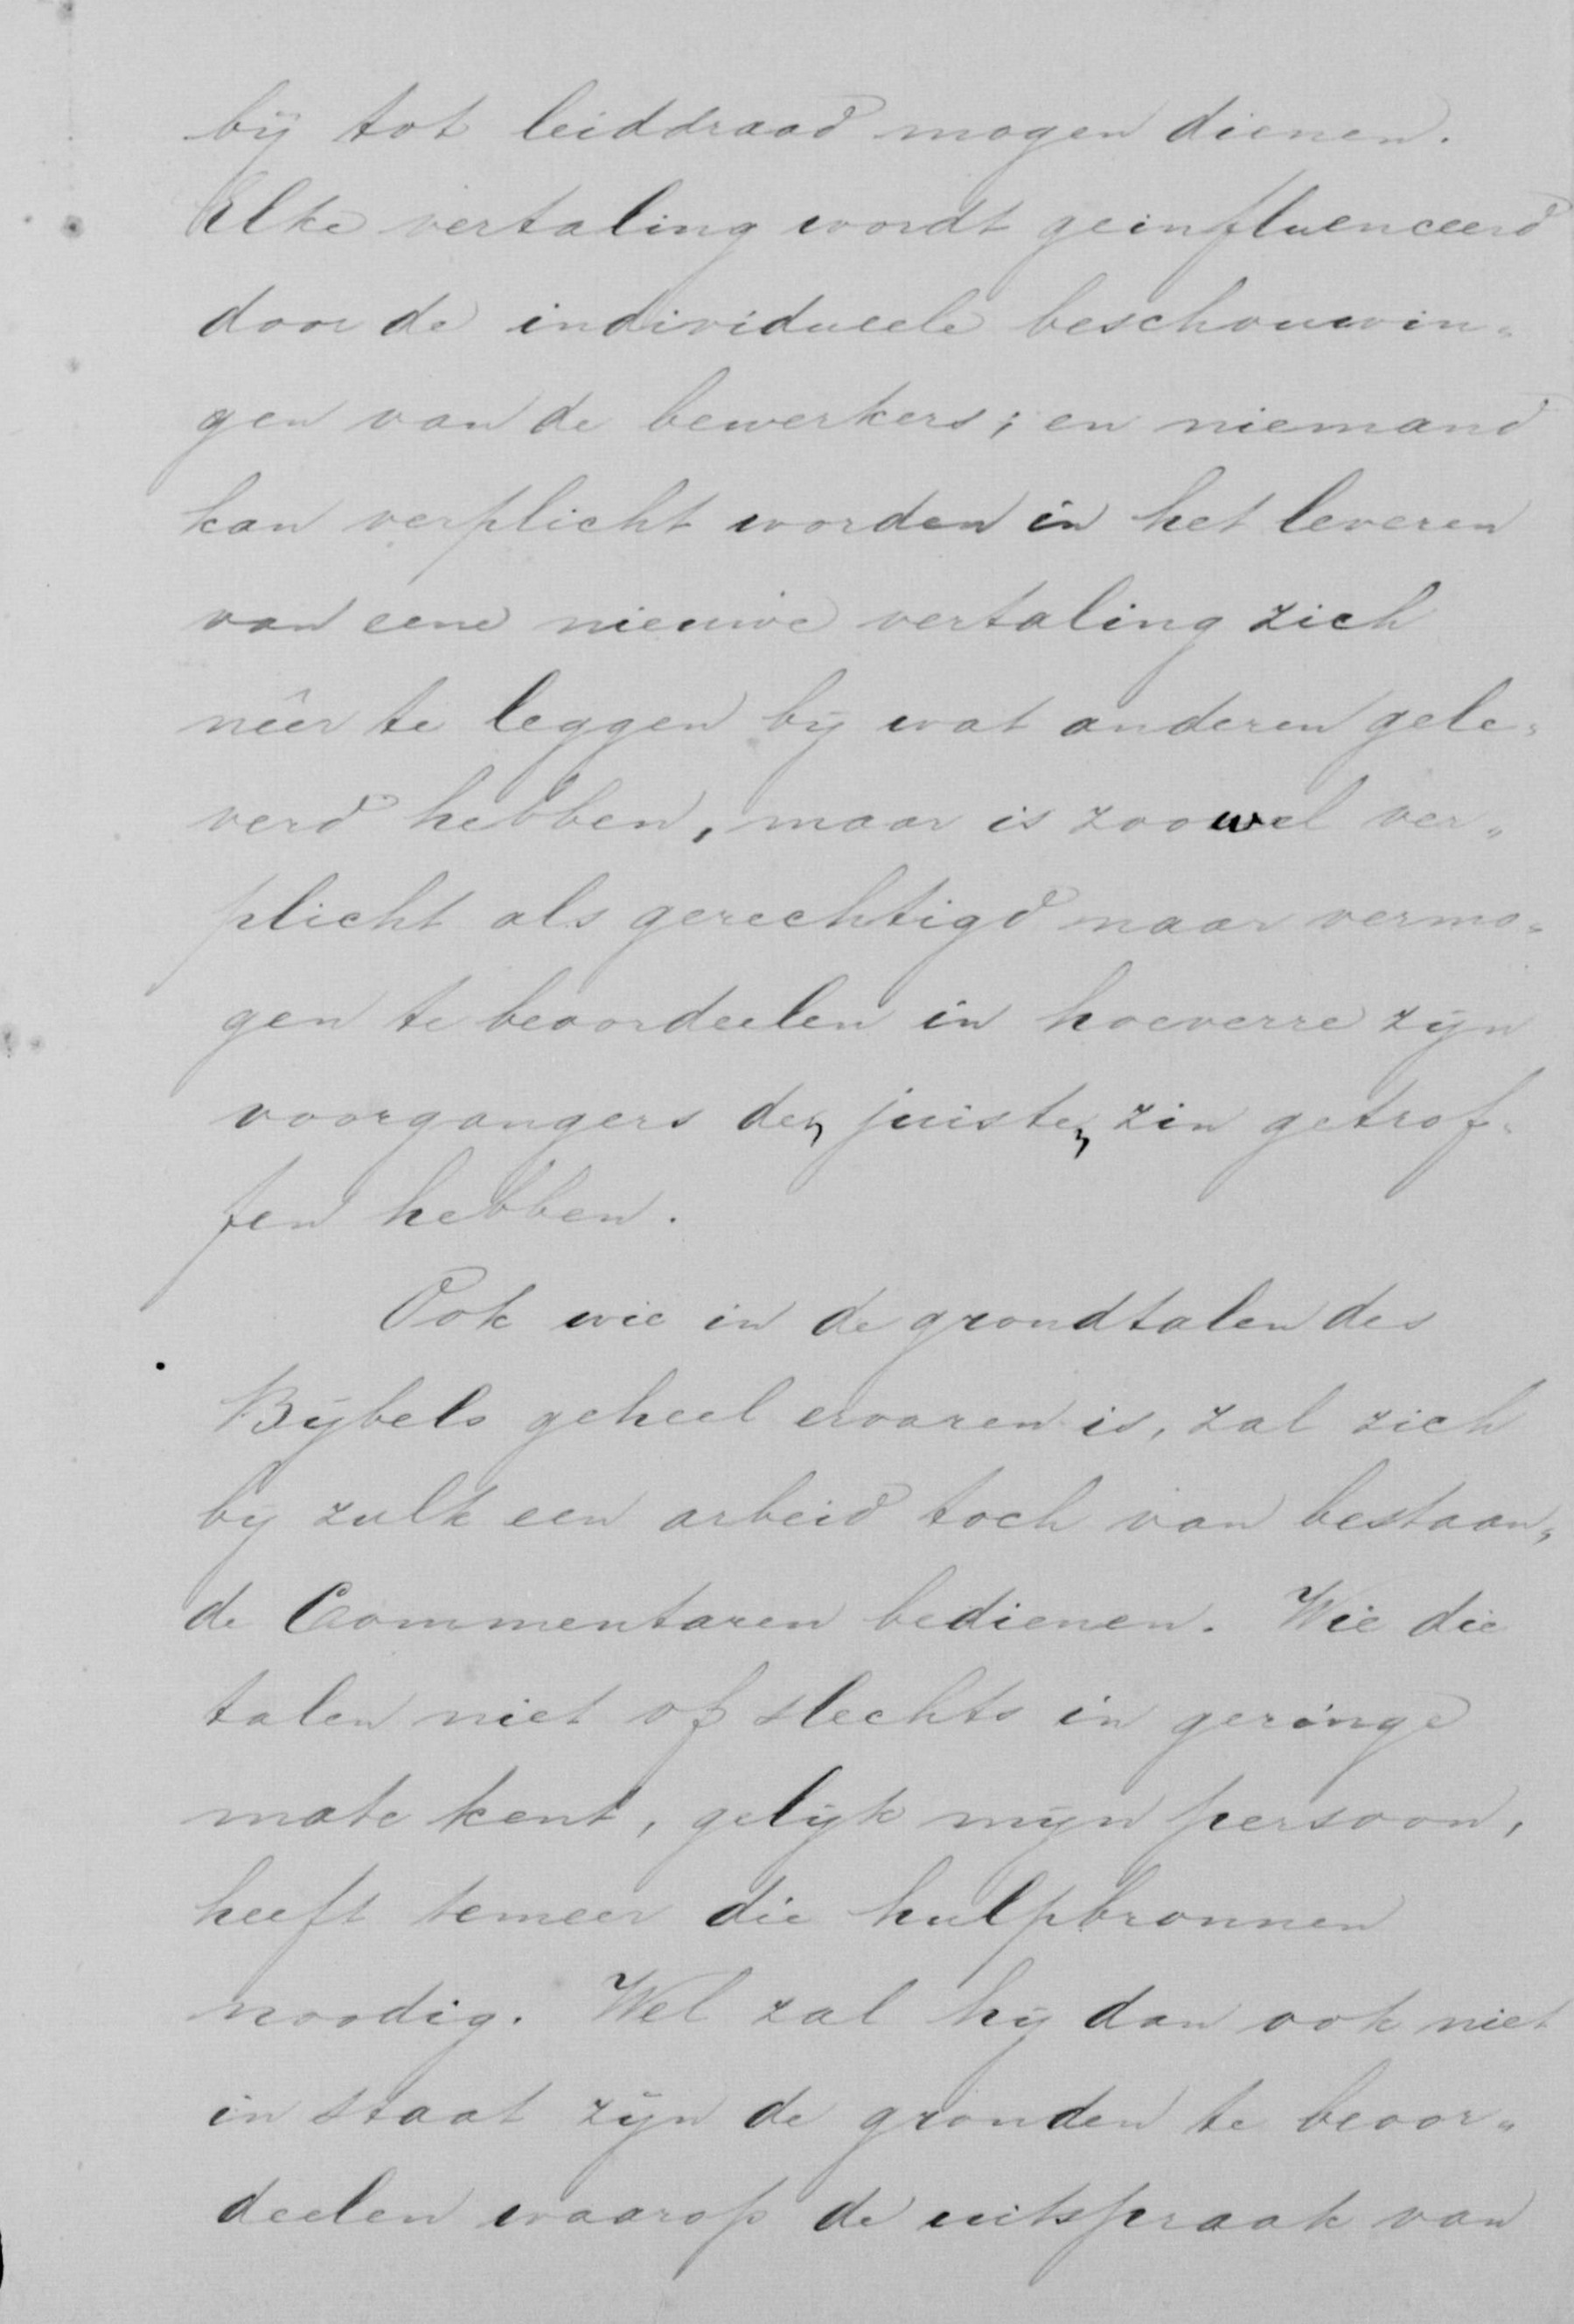 bij tot leiddraad mogen dienen.
Elke vertaling wordt geinfluenceerd
door de individueele beschouwin„
gen van de bewerkers; en niemand
kan verplicht worden in het leveren
van eene nieuwe vertaling zich
nêer te leggen bij wat anderen gele„
verd hebben, maar is zoowel ver„
plicht als gerechtigd naar vermo„
gen te beoordeelen in hoeverre zijn
voorgangers den juisten zin getrof„
fen hebben.
Ook wie in de grondtalen des
Bijbels geheel ervaren is, zal zich
bij zulk een arbeid toch van bestaan„
de Commentaren bedienen. Wie die
talen niet of slechts in geringe
mate kent, gelijk mijn persoon,
heeft temeer die hulpbronnen
noodig. Wel zal hij dan ook niet
in staat zijn de gronden te beoor„
deelen waarop de uitspraak van